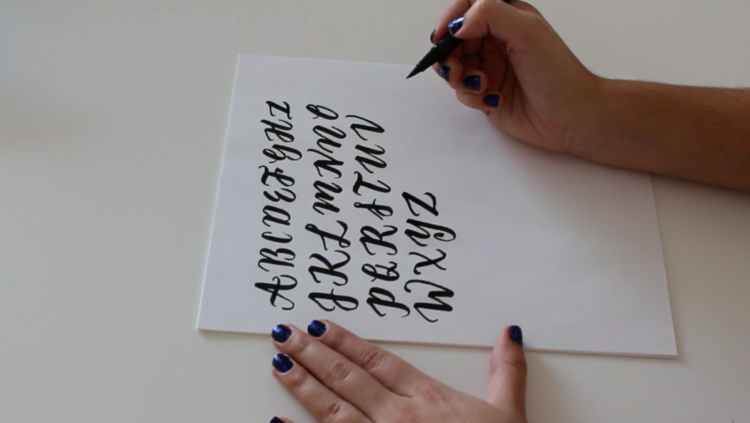 ABCDEFGHI
JKLMNO
PQRSTUV
WXYZ